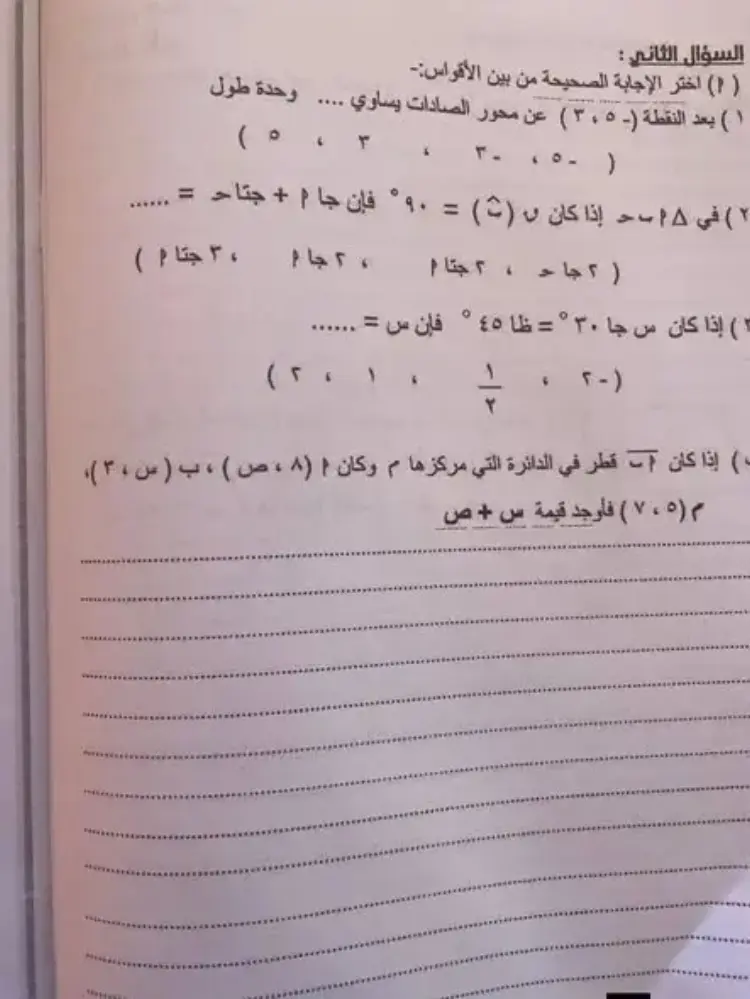 السؤال الثاني :
( ٢ ) اختر الإجابة الصحيحة من بين الأقواس:-
١ ) بعد النقطة (- ٥ ، ٣ ) عن محور الصادات يساوي .... وحدة طول
( -٥ ، -٣ ، ٣ ، ٥ )
٢ ) في Δ ا ب حـ إذا كان ن ( بَ ) = ٩٠ ° فإن جا ا + جتا حـ = ......
( ٢ جا حـ ، ٢ جتا ا ، ٢ جا ا ، ٣ جتا ا )
) إذا كان س جا ٣٠ ° = ظا ٤٥ ° فإن س = ......
( -٢ ، ١/٢ ، ١ ، ٢ )
) إذا كان ا ب قطر في الدائرة التي مركزها م وكان ا ( ٨ ، ص ) ، ب ( س ، ٣ )،
م ( ٥ ، ٧ ) فأوجد قيمة س + ص